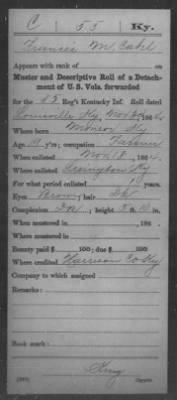 C 55 Ky.
Francis M. Cahl
Appears with rank of
Muster and Descriptive Roll of a Detach-
ment of U. S. Vols. forwarded
for the 55 Reg't Kentucky Inf. Roll dated
Louisville Ky, Nov 26, 1864.
Where born Monroe Ky
Age 19 y'rs; occupation Farmer
When enlisted Nov 18, 1864.
Where enlisted Lexington Ky
For what period enlisted 1 years.
Eyes Brown; hair Dk
Complexion Dk; height 5 ft. 10 in.
When mustered in , 186 .
Where mustered in
Bounty paid $ 100; due $ 100
Where credited Harrison Co Ky
Company to which assigned
Remarks:
Book mark:
King
Copyist.